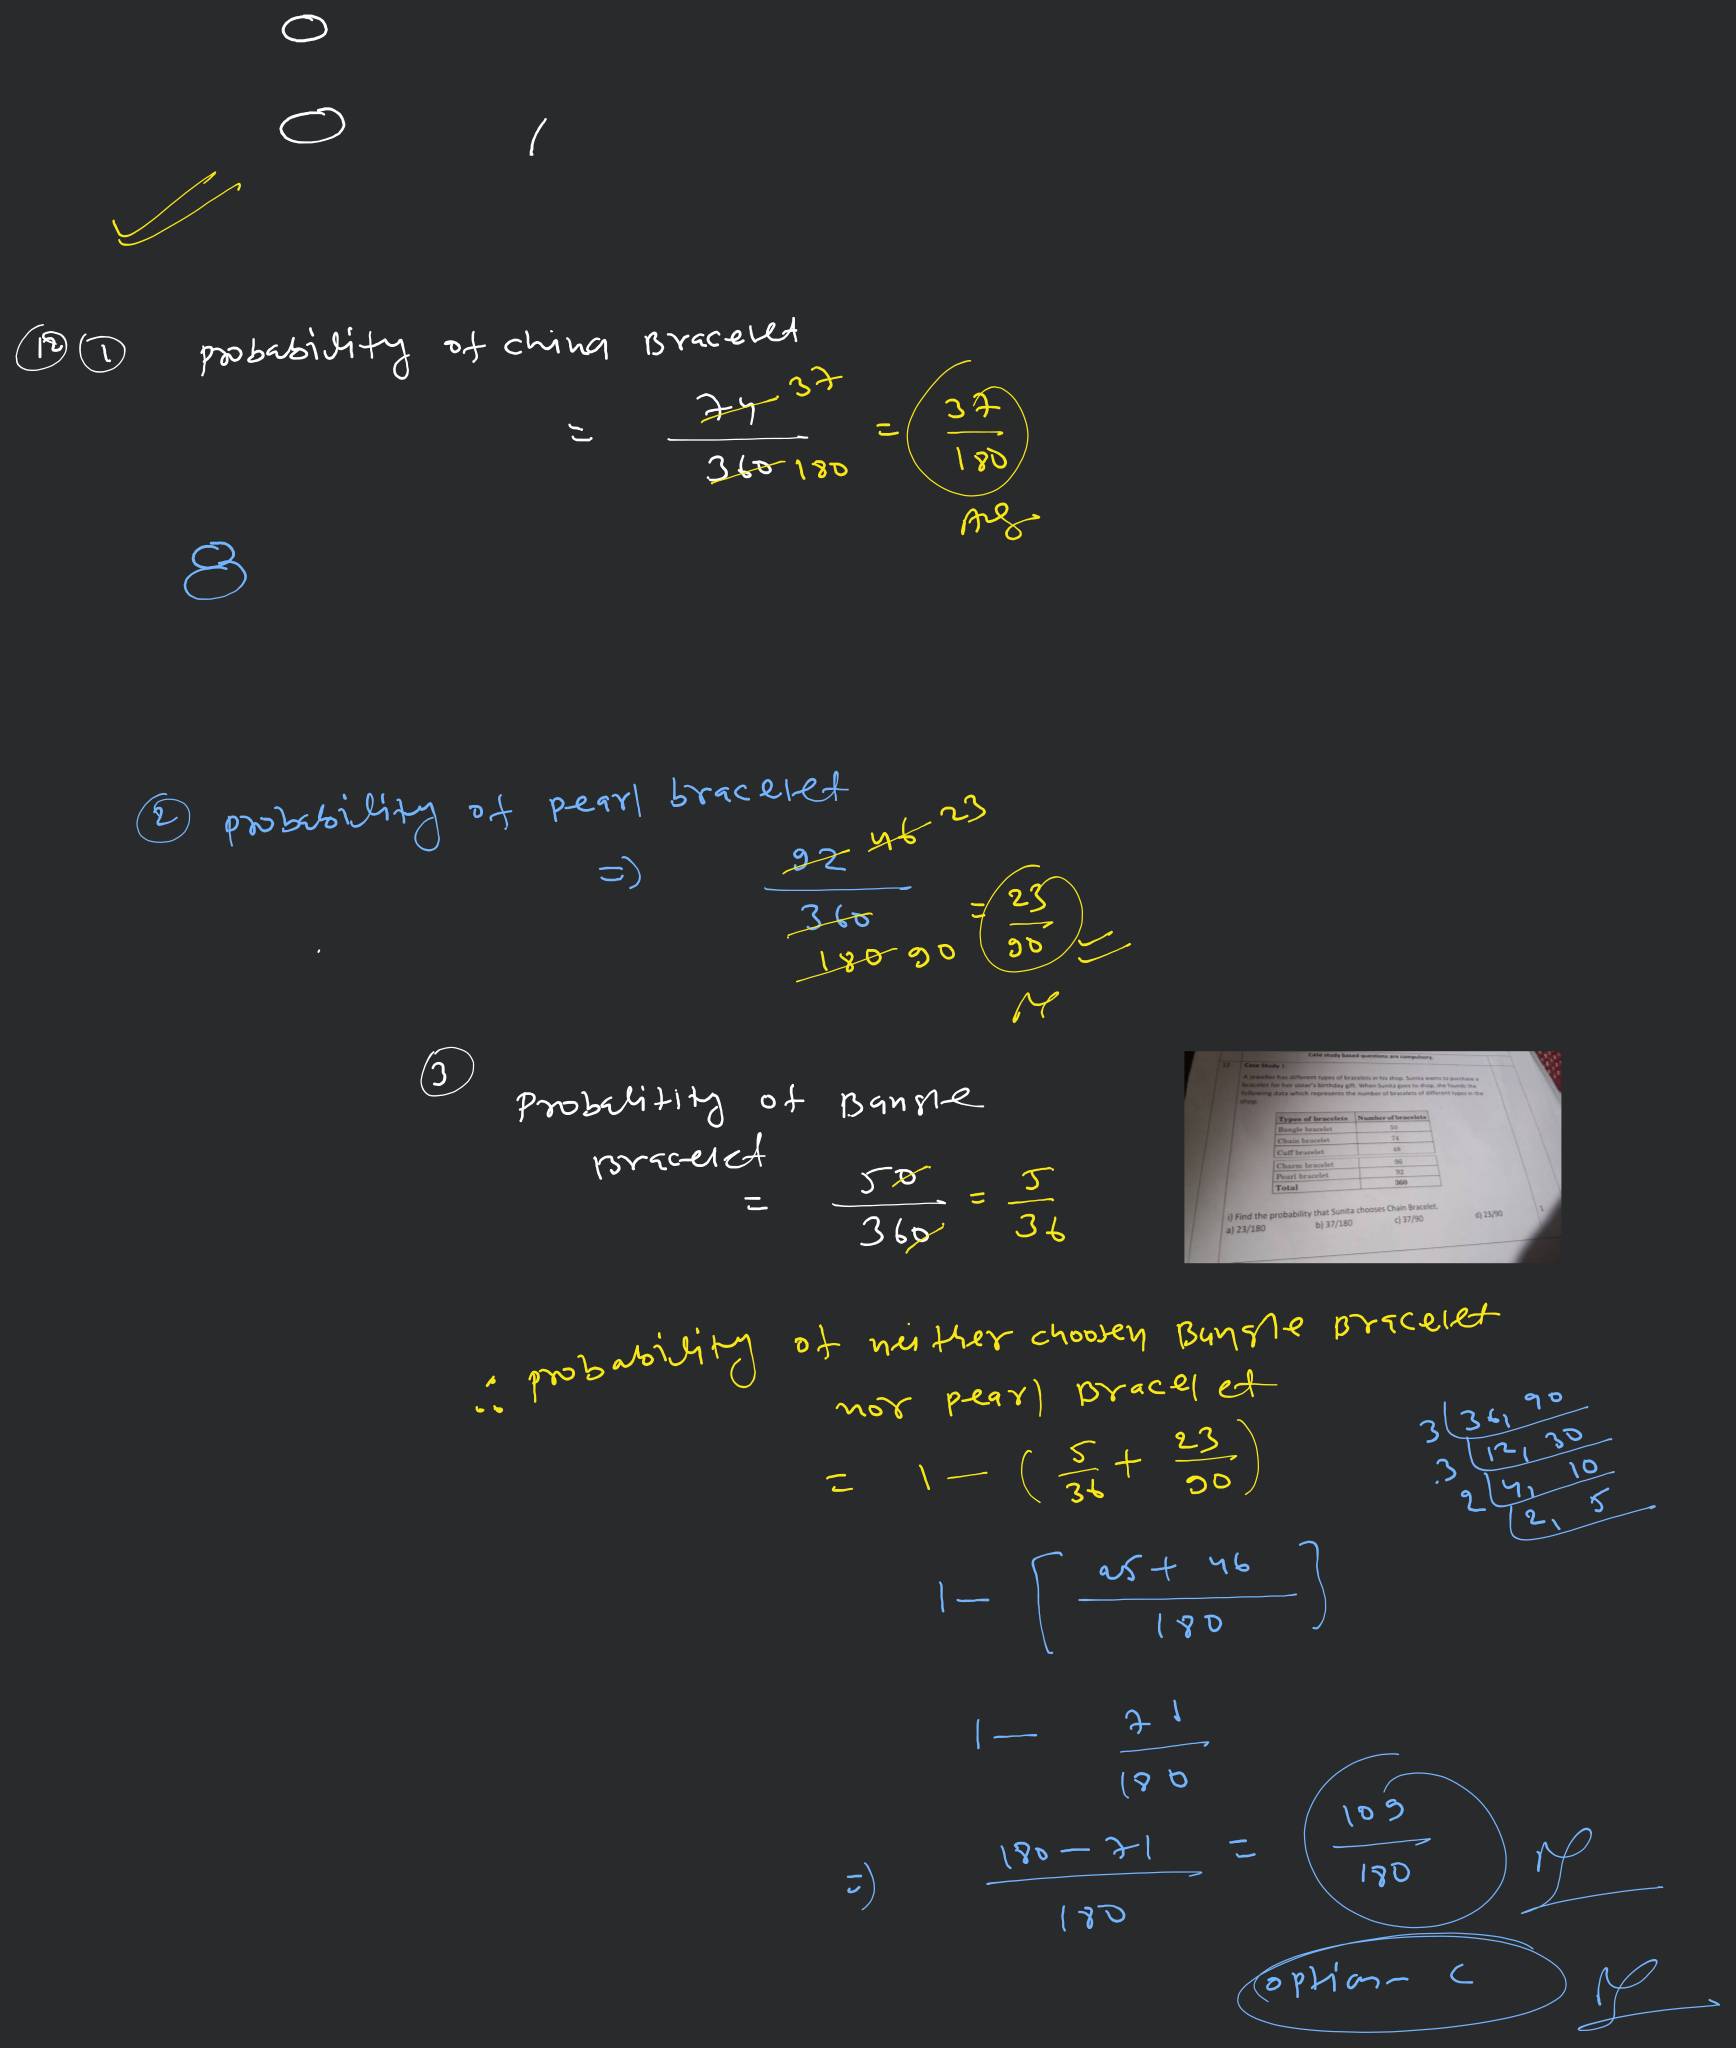 12 1 probability of china Bracelet
= 74 37 / 360 180 = 37 / 180
Ans
8
2 probability of pearl bracelet
=> 92 46 23 / 360 180 90 = 23 / 90
3
Probalitity of Bangle
Bracelet
= 50 / 360 = 5 / 36
Case study based questions are compulsory.
12 Case Study 1
A jeweller has different types of bracelets in his shop. Sunita wants to purchase a
bracelet for her sister's birthday gift. When Sunita goes to shop, she founds the
following data which represents the number of bracelets of different types in the
shop.
Types of bracelets Number of bracelets
Bangle bracelet 50
Chain bracelet 74
Cuff bracelet 48
Charm bracelet 96
Pearl bracelet 92
Total 360
i) Find the probability that Sunita chooses Chain Bracelet. 1
a) 23/180 b) 37/180 c) 37/90 d) 23/90
∴ probability of neither choosen Bangle Bracelet
nor pearl Bracelet
= 1 - ( 5 / 36 + 23 / 90 )
3 36, 90
3 12, 30
2 4, 10
2, 5
1 - [ 25 + 46 / 180 ]
1 - 71 / 180
=> 180 - 71 / 180 = 109 / 180
option C